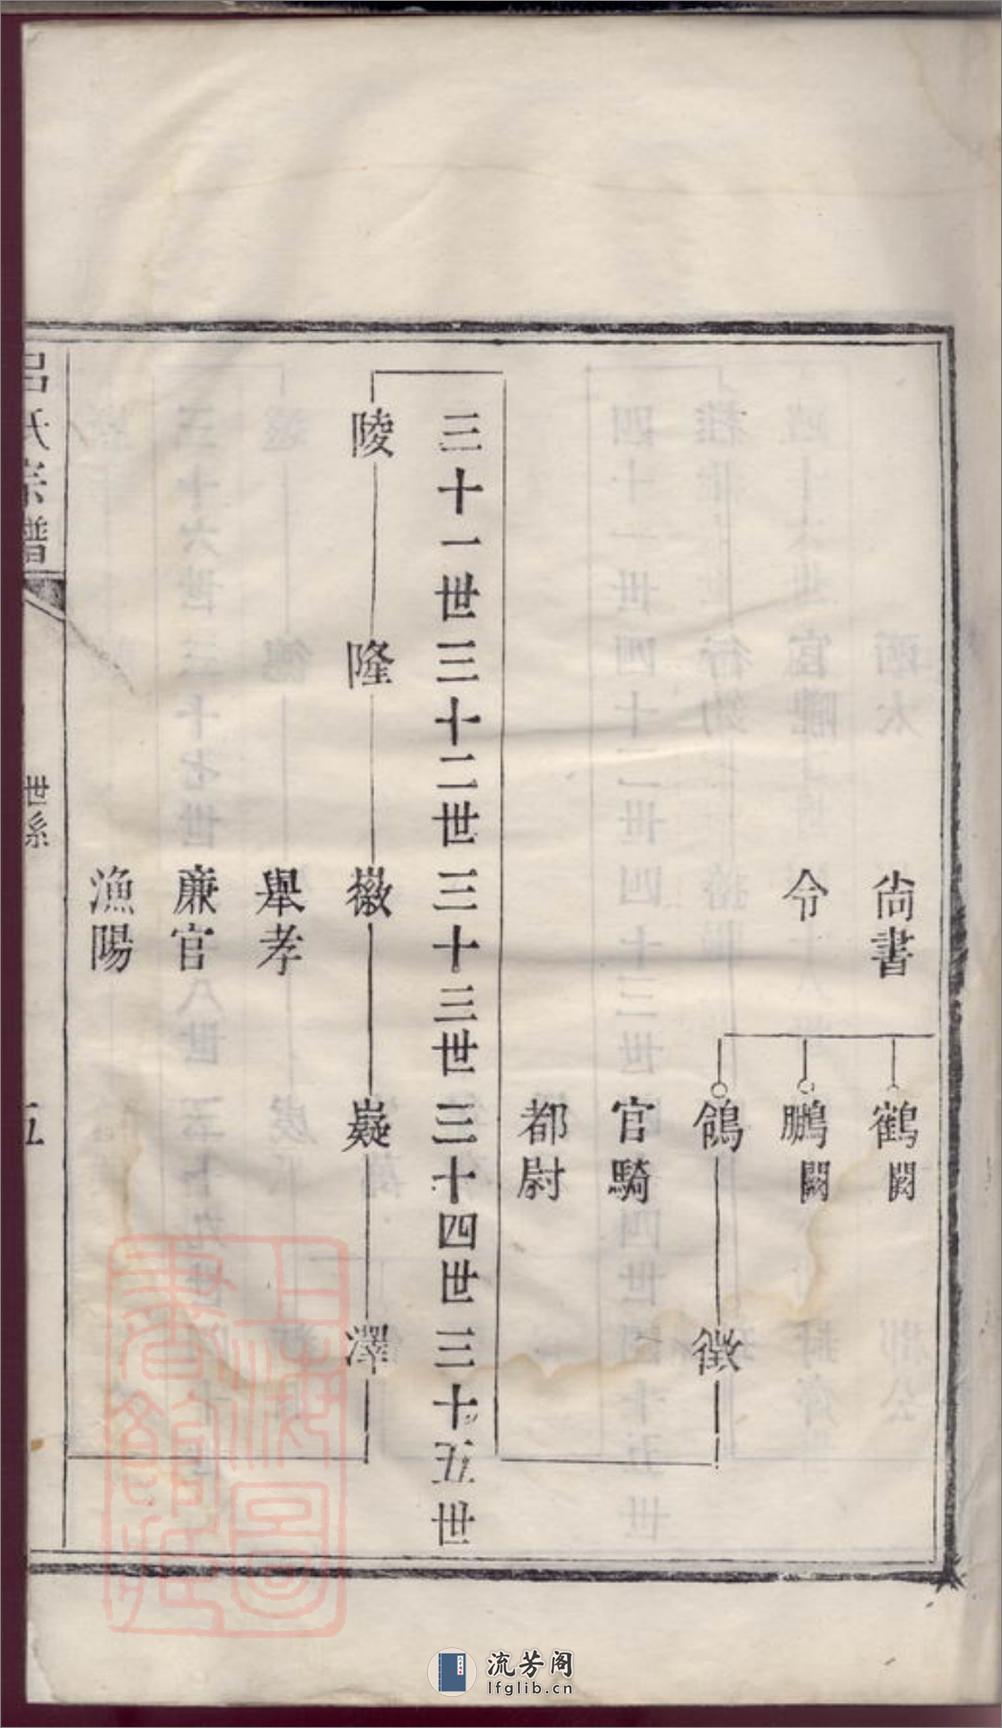 尚書
鶴闕
令
鵬闕
鴿
徵
官騎
都尉
三十一世三十二世三十三世三十四世三十五世
陵
隆
徽
嶷
澤
舉孝
廉官
漁陽
呂氏宗譜
世系
五
上海圖書館藏
流芳阁
lfglib.cn